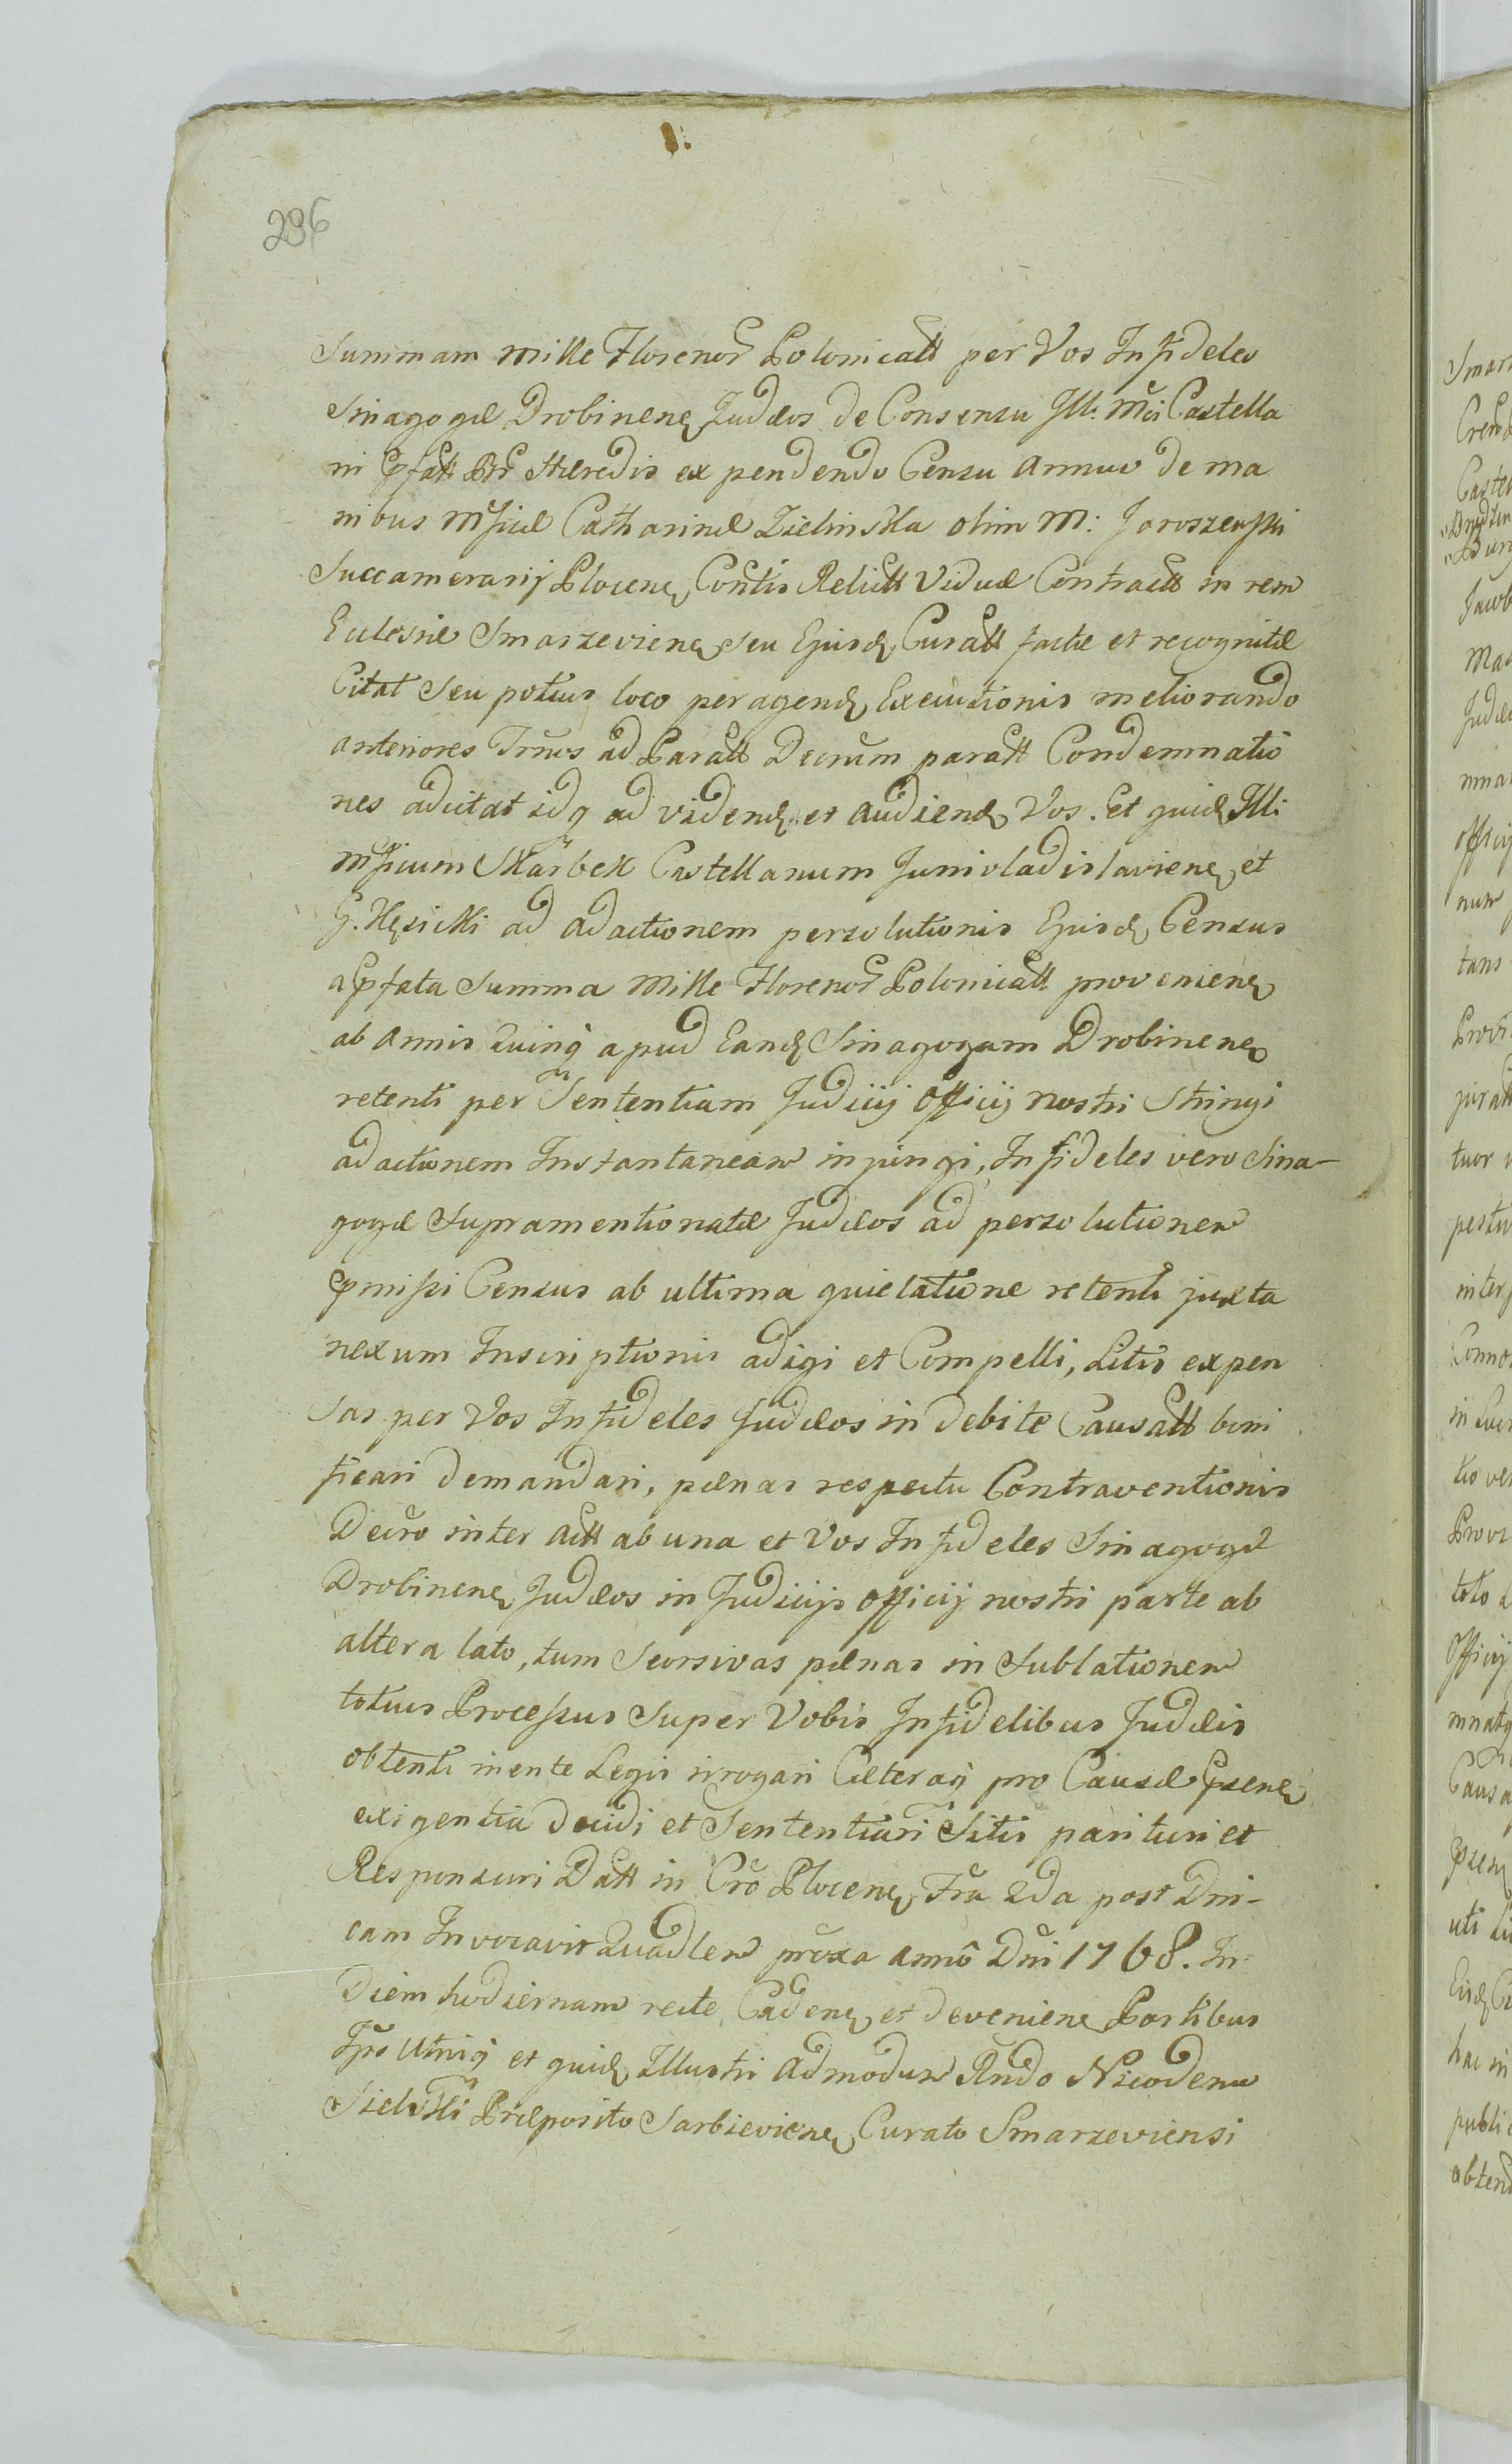 296
Summam Mille Florenor Polonicatt per Vos Infideles
Sinagogæ Drobinens Judæos de Consensu Ill: Mci Castella
ni Ppfatt Bnr Hæredis ex pendendo Censu annuo de ma
nibus Mficæ Catharinæ Zielinska olim M: Jaroszewski
Succamerarij Plocens Contis Relictt Viduæ Contractt in rem
Eclesiæ Smarzeviens seu Ejusd Curatt factæ et recognitæ
Citat Seu potius loco peragend Executionis meliorando
anteriores Trnos ad Paratt Decrum paratt Condemnatio
nes adcitat idq ad vidend et audiend Vos. Et quid Illi
Mficum Skarbek Castellanum Junivladislaviens et
G. Kęsicki ad adactionem persolutionis Ejusd Census
a Ppfata Summa Mille Florenor Polonicatt proveniens
ab annis Quinq apud Eand Sinagogam Drobinens
retenti per Sententiam Judicij Officij nostri Stringi
adactionem Instantaneam injungi, Infideles vero Sina-
gogæ Supramentionatæ Judæos ad persolutionem
Ppmissi Census ab ultima quietatione retenti juxta
nexum Inscriptionis adigi et Compelli, Litis expen
sas per Vos Infideles Judæos indebite Causatt boni
ficari demandari, pænas respectu Contraventionis
Decro inter Actt ab una et Vos Infideles Sinagogæ
Drobinens Judæos in Judicijs Officij nostri parte ab
altera lato, tum Seorsivas pænas in Sublationem
totius Processus Super Vobis Infidelibus Judæis
obtenti mente Legis irrogari Cæteraq pro Causæ Ppsens
exigentia decidi et Sententiari Sitis parituri et
Responsuri Datt in Cro Plocens Fra 2da post Dni-
cam Invocavit Quadlem proxa Anno Dni 1768. In
Diem hodiernam recte Cadens et deveniens Partibus
Tpre Utrisq et quid Illustri Admodum Rndo Nicodemo
Præposito Sarbieviens Curato Smarzeviensi